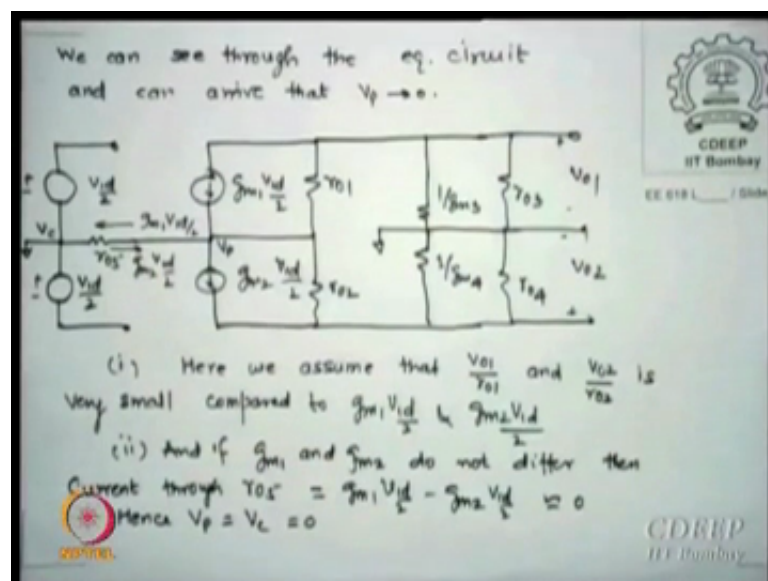 We can see through the eq. circuit
and can arrive that Vp → 0.
CDEEP
IIT Bombay
EE 618 L____ / Slide
Vid/2
gm1 Vid/2
r01
1/gm3
r03
V01
Vc
gm1 Vid/2
r05
gm2 Vid/2
Vp
Vid/2
gm2 Vid/2
r02
1/gm4
r04
V02
(i) Here we assume that V01/r01 and V02/r02 is
very small compared to gm1 Vid/2 & gm2 Vid/2
(ii) And if gm1 and gm2 do not differ then
Current through r05 = gm1 Vid/2 - gm2 Vid/2 ≈ 0
Hence Vp = Vc = 0
NPTEL
CDEEP
IIT Bombay